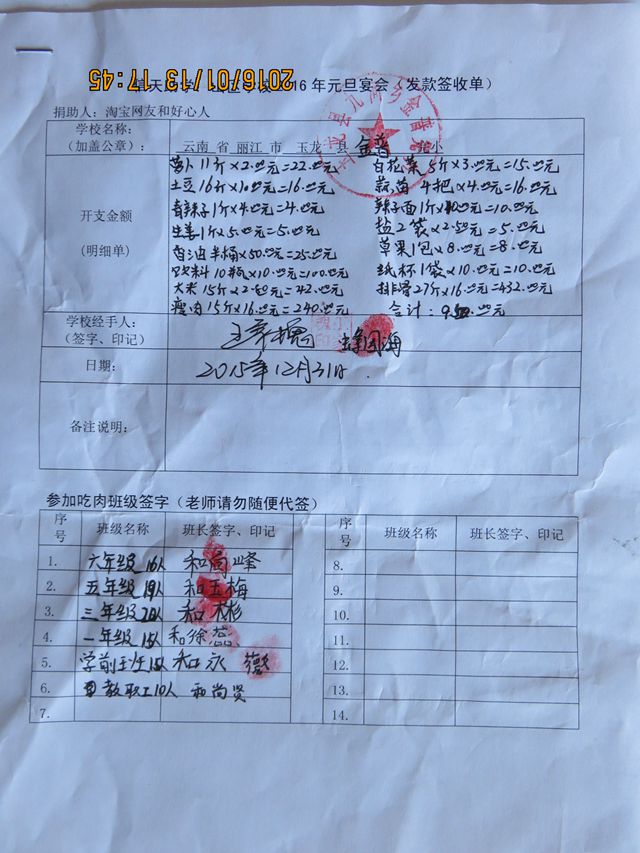 2016/01/13/17:45
16年元旦宴会（发款签收单）
捐助人：淘宝网友和好心人
学校名称：
（加盖公章）：
云南 省 丽江 市 玉龙 县 金普 完小
开支金额
(明细单)
萝卜11斤×2.00元=22.00元 白花菜5斤×3.00元=15.00元
土豆16斤×1.00元=16.00元 蒜苗4把×4.00元=16.00元
青辣子1斤×4.00元=4.00元 辣子面1斤×10.00元=10.00元
生姜1斤×5.00元=5.00元 盐2袋×2.50元=5.00元
香油半桶×50.00元=25.00元 草果1包×8.00元=8.00元
饮料10瓶×10.00元=100.00元 纸杯1袋×10.00元=10.00元
大米15斤×2.80元=42.00元 排骨27斤×16.00元=432.00元
瘦肉15斤×16.00元=240.00元 合计：
学校经手人：
（签字、印记）
国海
日期：
2015年12月31日.
备注说明：
参加吃肉班级签字（老师请勿随便代签）
序号 班级名称 班长签字、印记 序号 班级名称 班长签字、印记
1. 六年级16人 和尚峰 8.
2. 五年级19人 和玉梅 9.
3. 三年级20人 和彬 10.
4. 一年级15人 和徐蕊 11.
5. 学前班 和永 12.
6. 教职工10人 和尚贤 13.
7. 14.